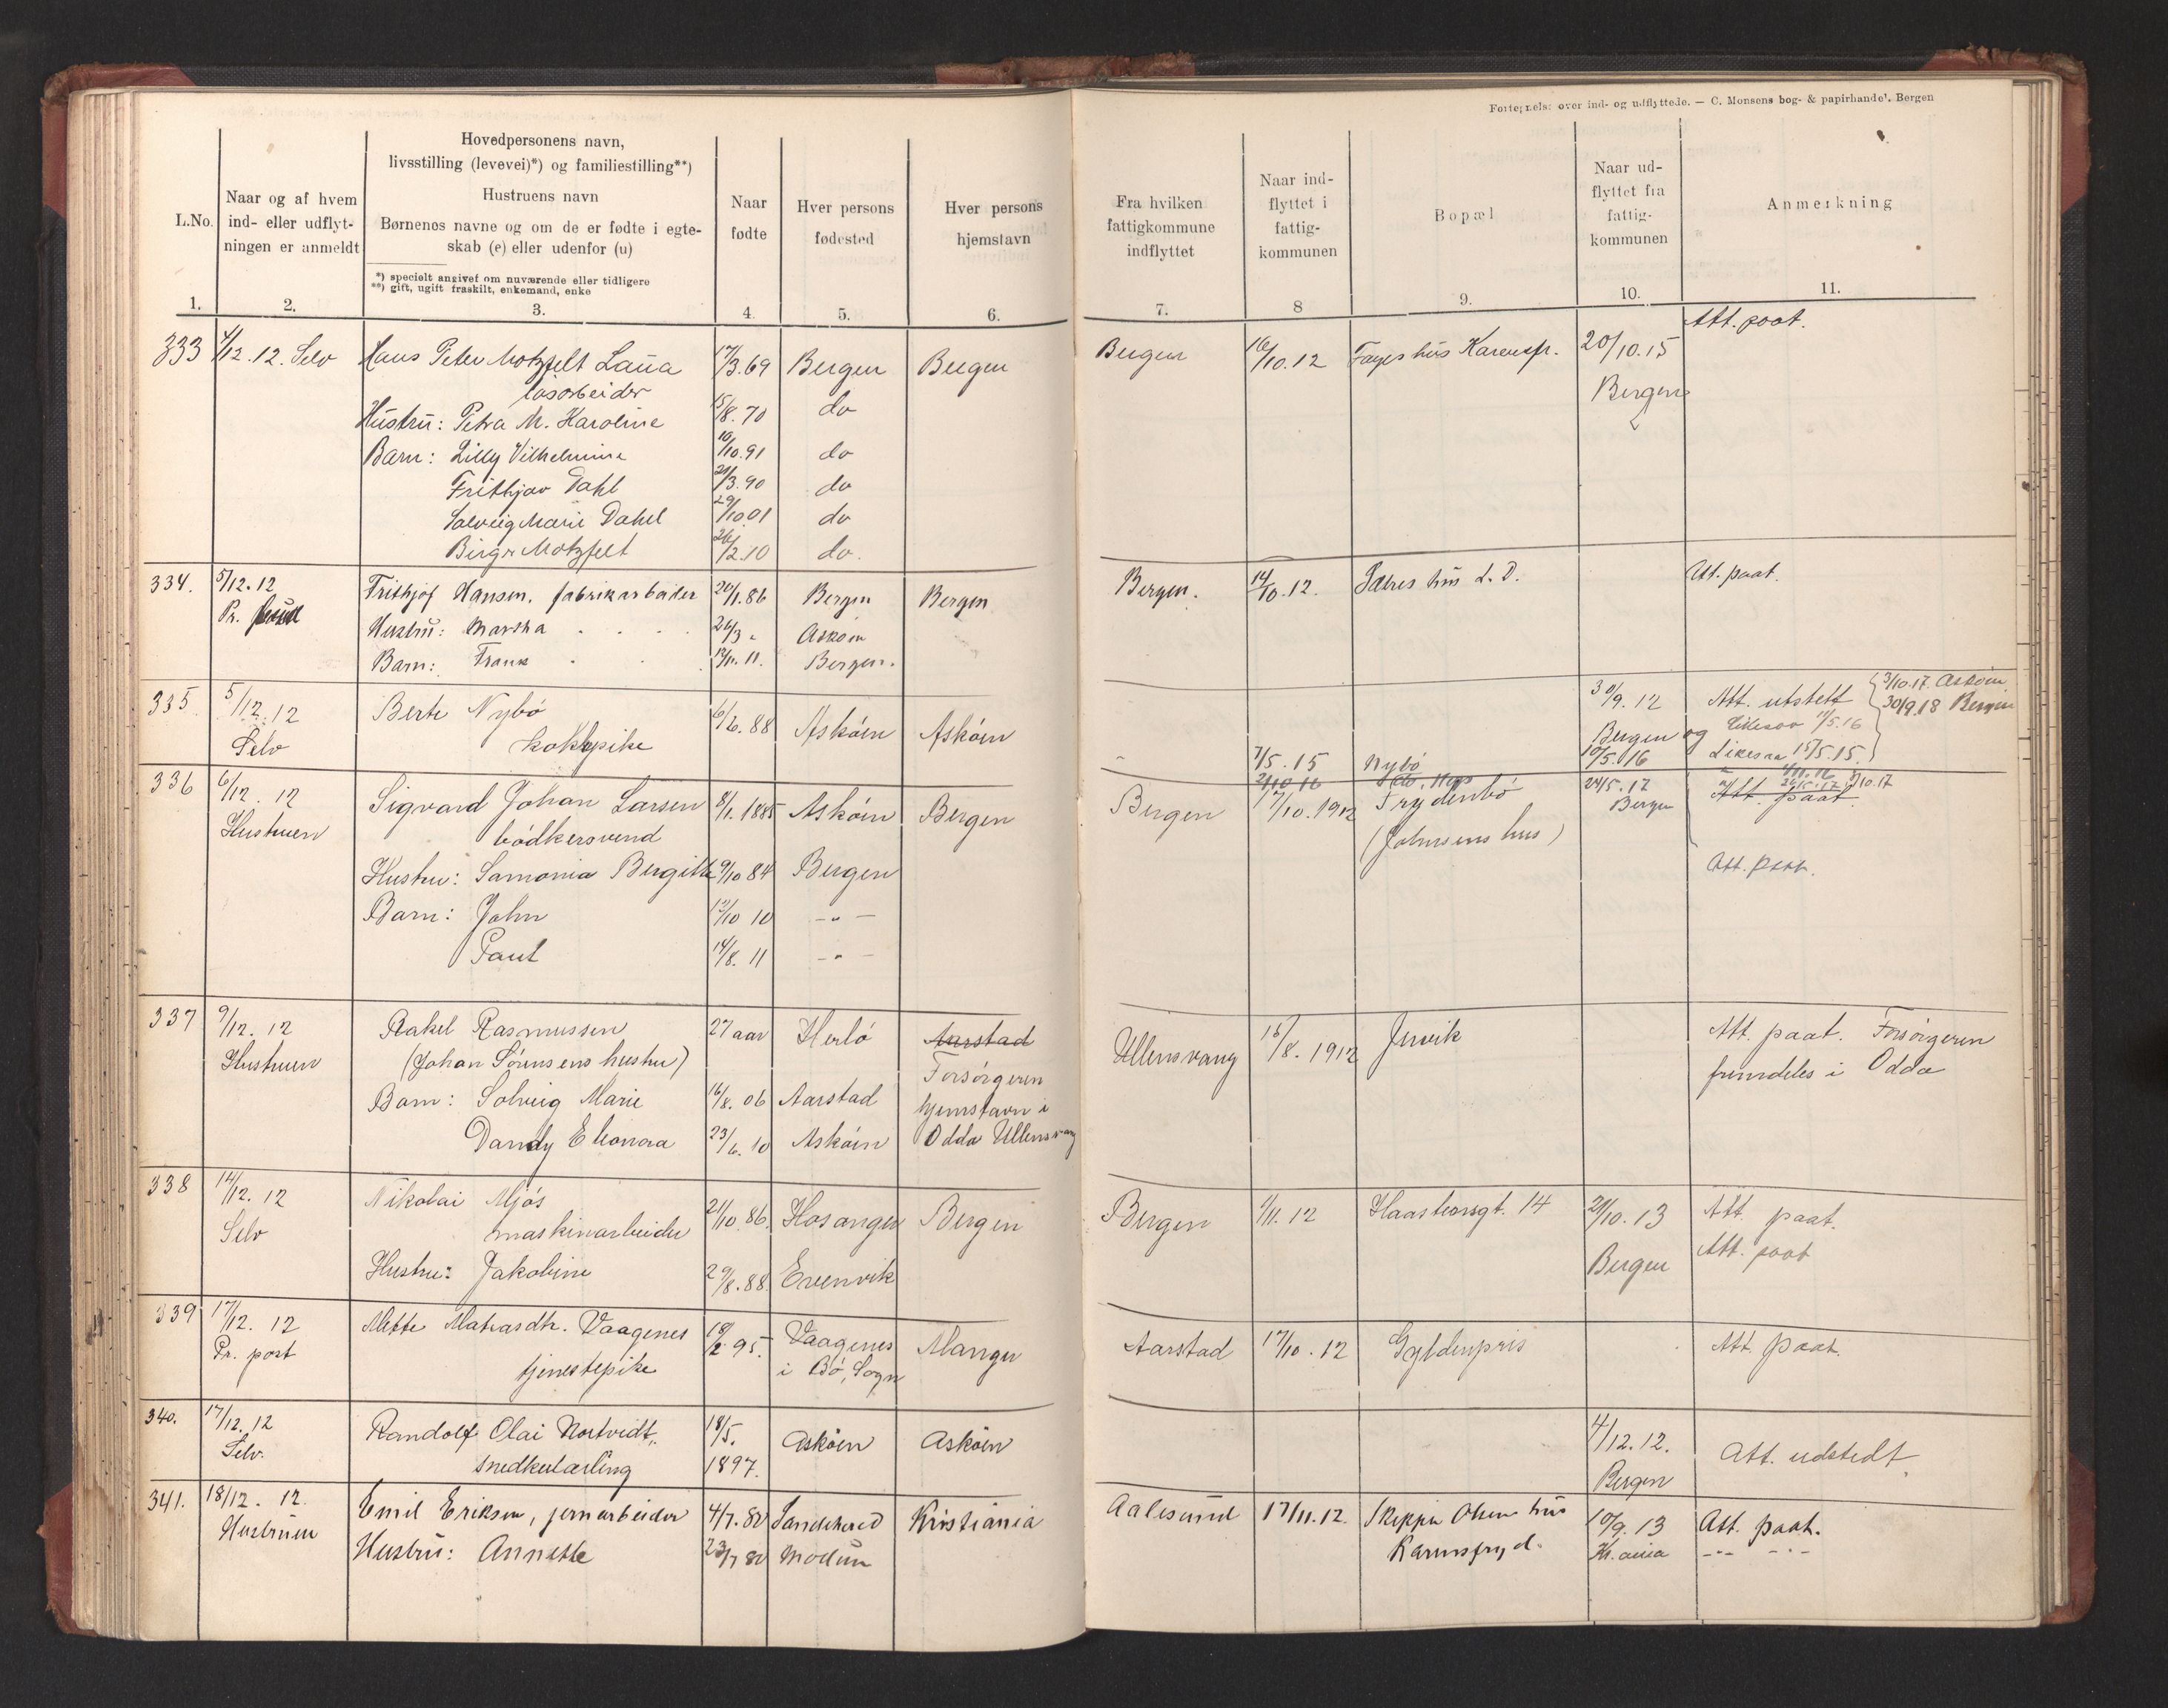 Fortegnelse over ind- og udflyttede. — C. Monsens bog- & papirhandel. Bergen
L.No.
1.
Naar og af hvem
ind- eller udflyt-
ningen er anmeldt
2.
Hovedpersonens navn,
livsstilling (levevei)*) og familiestilling**)
Hustruens navn
Børnenes navne og om de er fødte i egte-
skab (e) eller udenfor (u)
*) specielt angivet om nuværende eller tidligere
**) gift, ugift fraskilt, enkemand, enke
3.
Naar
fødte
4.
Hver persons
fødested
5.
Hver persons
hjemstavn
6.
Fra hvilken
fattigkommune
indflyttet
7.
Naar ind-
flyttet i
fattig-
kommunen
8
Bopæl
9.
Naar ud-
flyttet fra
fattig-
kommunen
10.
Anmerkning
11.
333 4/12.12. Selv Hans Peter Motzfelt Laua 17/3.69 Bergen Bergen Bergen 16/10.12 Fayes hus Karensfr. 20/10.15 Att. paat.
løsarbeider Bergen
Hustru: Petra M. Karoline 15/8.70 do
Barn: Lilly Vilhelmine 10/10.91 do
Frithjov Dahl 21/3.90 do
Solveig Marie Dahl 29/10 01 do
Birger Motzfelt 26/2.10 do.
334. 5/12.12 Frithjof Hansen, fabrikarbeider 20/1.86 Bergen Bergen Bergen. 14/10.12. hus L.D. Att. paat.
Pr. Hustru: Martha 26/3 " Askøin
Barn: Frank 12/11.11. Bergen.
335 5/12.12 Berte Nybø 6/6.88 Askøin Askøin 30/9.12 Att. utstett 3/10.17 Askøin
Selv kokkepike Bergen og 11/5.16 30/9.18 Bergen
7/5.15 Nybø 10/5.16 15/5.15.
2/10 16 24/5.17 1/11.16 26/5.17 2/10.17
336 6/12.12 Sigvard Johan Larsen 8/1.1885 Askøin Bergen Bergen 17/10.1912 Frydenbø Bergen Att. paat.
Hustruen bødkersvend (Johnsens hus)
Hustru: Samonia Bergitte 9/10 84 Bergen Att. paat.
Barn: John 12/10 10 — " —
Paul 14/8.11 — " —
337 9/12.12 Rakel Rasmussen 27 aar Herlø Aarstad Ullensvang 16/8.1912 Jervik Att. paat. Forsørgeren
Hustruen (Johan Sørensens hustru) Forsørgeren fremdeles i Odda
Barn: Solveig Marie 16/8.06 Aarstad hjemstavn i
Dandy Eleonora 23/6.10 Askøin Odda Ullensvang
338 14/12.12 Nikolai Mjøs 21/10.86. Hosanger Bergen Bergen 1/11.12 Haasteinsgt. 14 21/10.13 Att. paat.
Selv maskinarbeider Bergen Att. paat
Hustru: Jakobine 29/8.88. Evenvik
339 17/12.12 Mette Matiasdtr. Vaagenes 18/2.95. Vaagenes Manger Aarstad 17/10.12 Gyldenpris Att. paat.
Pr. post tjenestepike i Bø, Sogn
340. 17/12.12 Randolf Olai Nortvedt, 18/5. Askøen Askøen 4/12.12. Att. udstedt
Selv. snedkerlærling 1897. Bergen
341. 18/12.12. Emil Eriksen, jernarbeider 4/7.80 Sandehered Kristiania Aalesund 17/11.12. Skipper Olsens hus 10/9.13 Att. paat.
Hustruen Hustru: Annette 23/7 80 Modum Karensfryd. Kr.ania —"— —"—